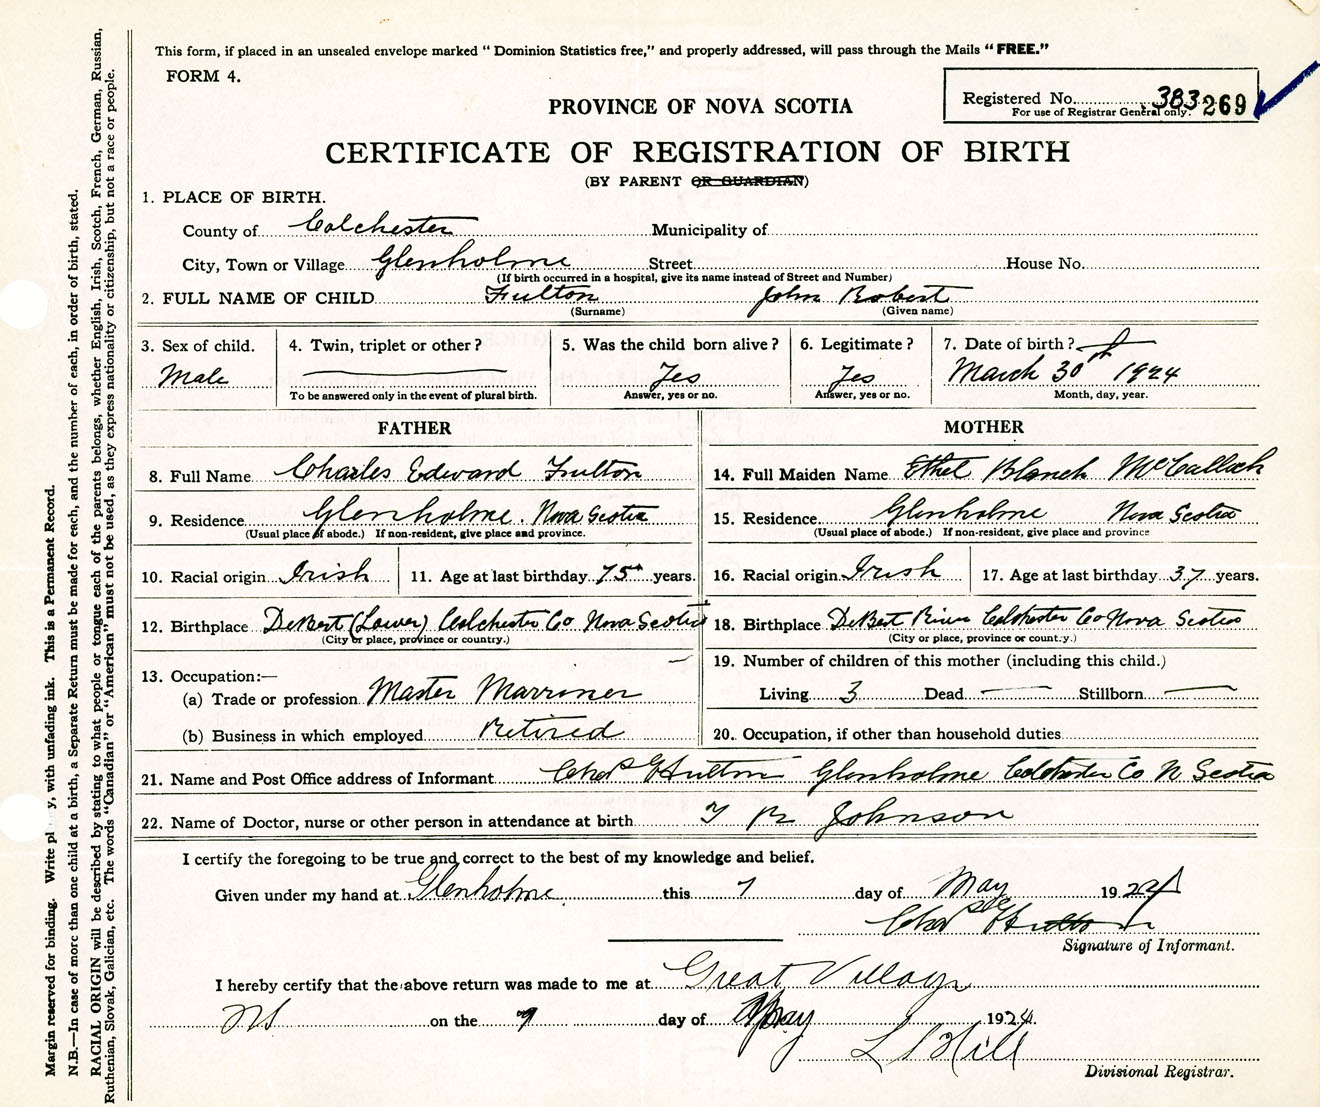 This form, if placed in an unsealed envelope marked "Dominion Statistics free," and properly addressed, will pass through the Mails "FREE."
FORM 4.
Registered No. 383 269
For use of Registrar General only.
PROVINCE OF NOVA SCOTIA
CERTIFICATE OF REGISTRATION OF BIRTH
(BY PARENT OR GUARDIAN)
1. PLACE OF BIRTH.
County of Colchester Municipality of
City, Town or Village Glenholme Street House No.
(If birth occurred in a hospital, give its name instead of Street and Number)
2. FULL NAME OF CHILD Fulton John Robert
(Surname) (Given name)
3. Sex of child. 4. Twin, triplet or other? 5. Was the child born alive? 6. Legitimate? 7. Date of birth?
Male Yes Yes March 30th 1924
To be answered only in the event of plural birth. Answer, yes or no. Answer, yes or no. Month, day, year.
FATHER MOTHER
8. Full Name Charles Edward Fulton 14. Full Maiden Name Ethel Blanch McCallock
9. Residence Glenholme. Nova Scotia 15. Residence Glenholme Nova Scotia
(Usual place of abode.) If non-resident, give place and province. (Usual place of abode.) If non-resident, give place and province
10. Racial origin Irish 11. Age at last birthday 75 years. 16. Racial origin Irish 17. Age at last birthday 37 years.
12. Birthplace DeBert (Lower) Colchester Co Nova Scotia 18. Birthplace DeBert River Colchester Co Nova Scotia
(City or place, province or country.) (City or place, province or country.)
13. Occupation:— 19. Number of children of this mother (including this child.)
(a) Trade or profession Master Marriner Living 3 Dead — Stillborn —
(b) Business in which employed Retired 20. Occupation, if other than household duties
21. Name and Post Office address of Informant Chas E Fulton Glenholme Colchester Co N Scotia
22. Name of Doctor, nurse or other person in attendance at birth T R Johnson
I certify the foregoing to be true and correct to the best of my knowledge and belief.
Given under my hand at Glenholme this 7 day of May 1924
Chas E Fulton
Signature of Informant.
I hereby certify that the above return was made to me at Great Village
NS on the 9 day of May 1924.
L S Hill
Divisional Registrar.
Margin reserved for binding. Write pl y, with unfading ink. This is a Permanent Record.
N.B.—In case of more than one child at a birth, a Separate Return must be made for each, and the number of each, in order of birth, stated.
RACIAL ORIGIN will be described by stating to what people or tongue each of the parents belongs, whether English, Irish, Scotch, French, German, Russian,
Ruthenian, Slovak, Galician, etc. The words "Canadian" or "American" must not be used, as they express nationality or citizenship, but not a race or people.